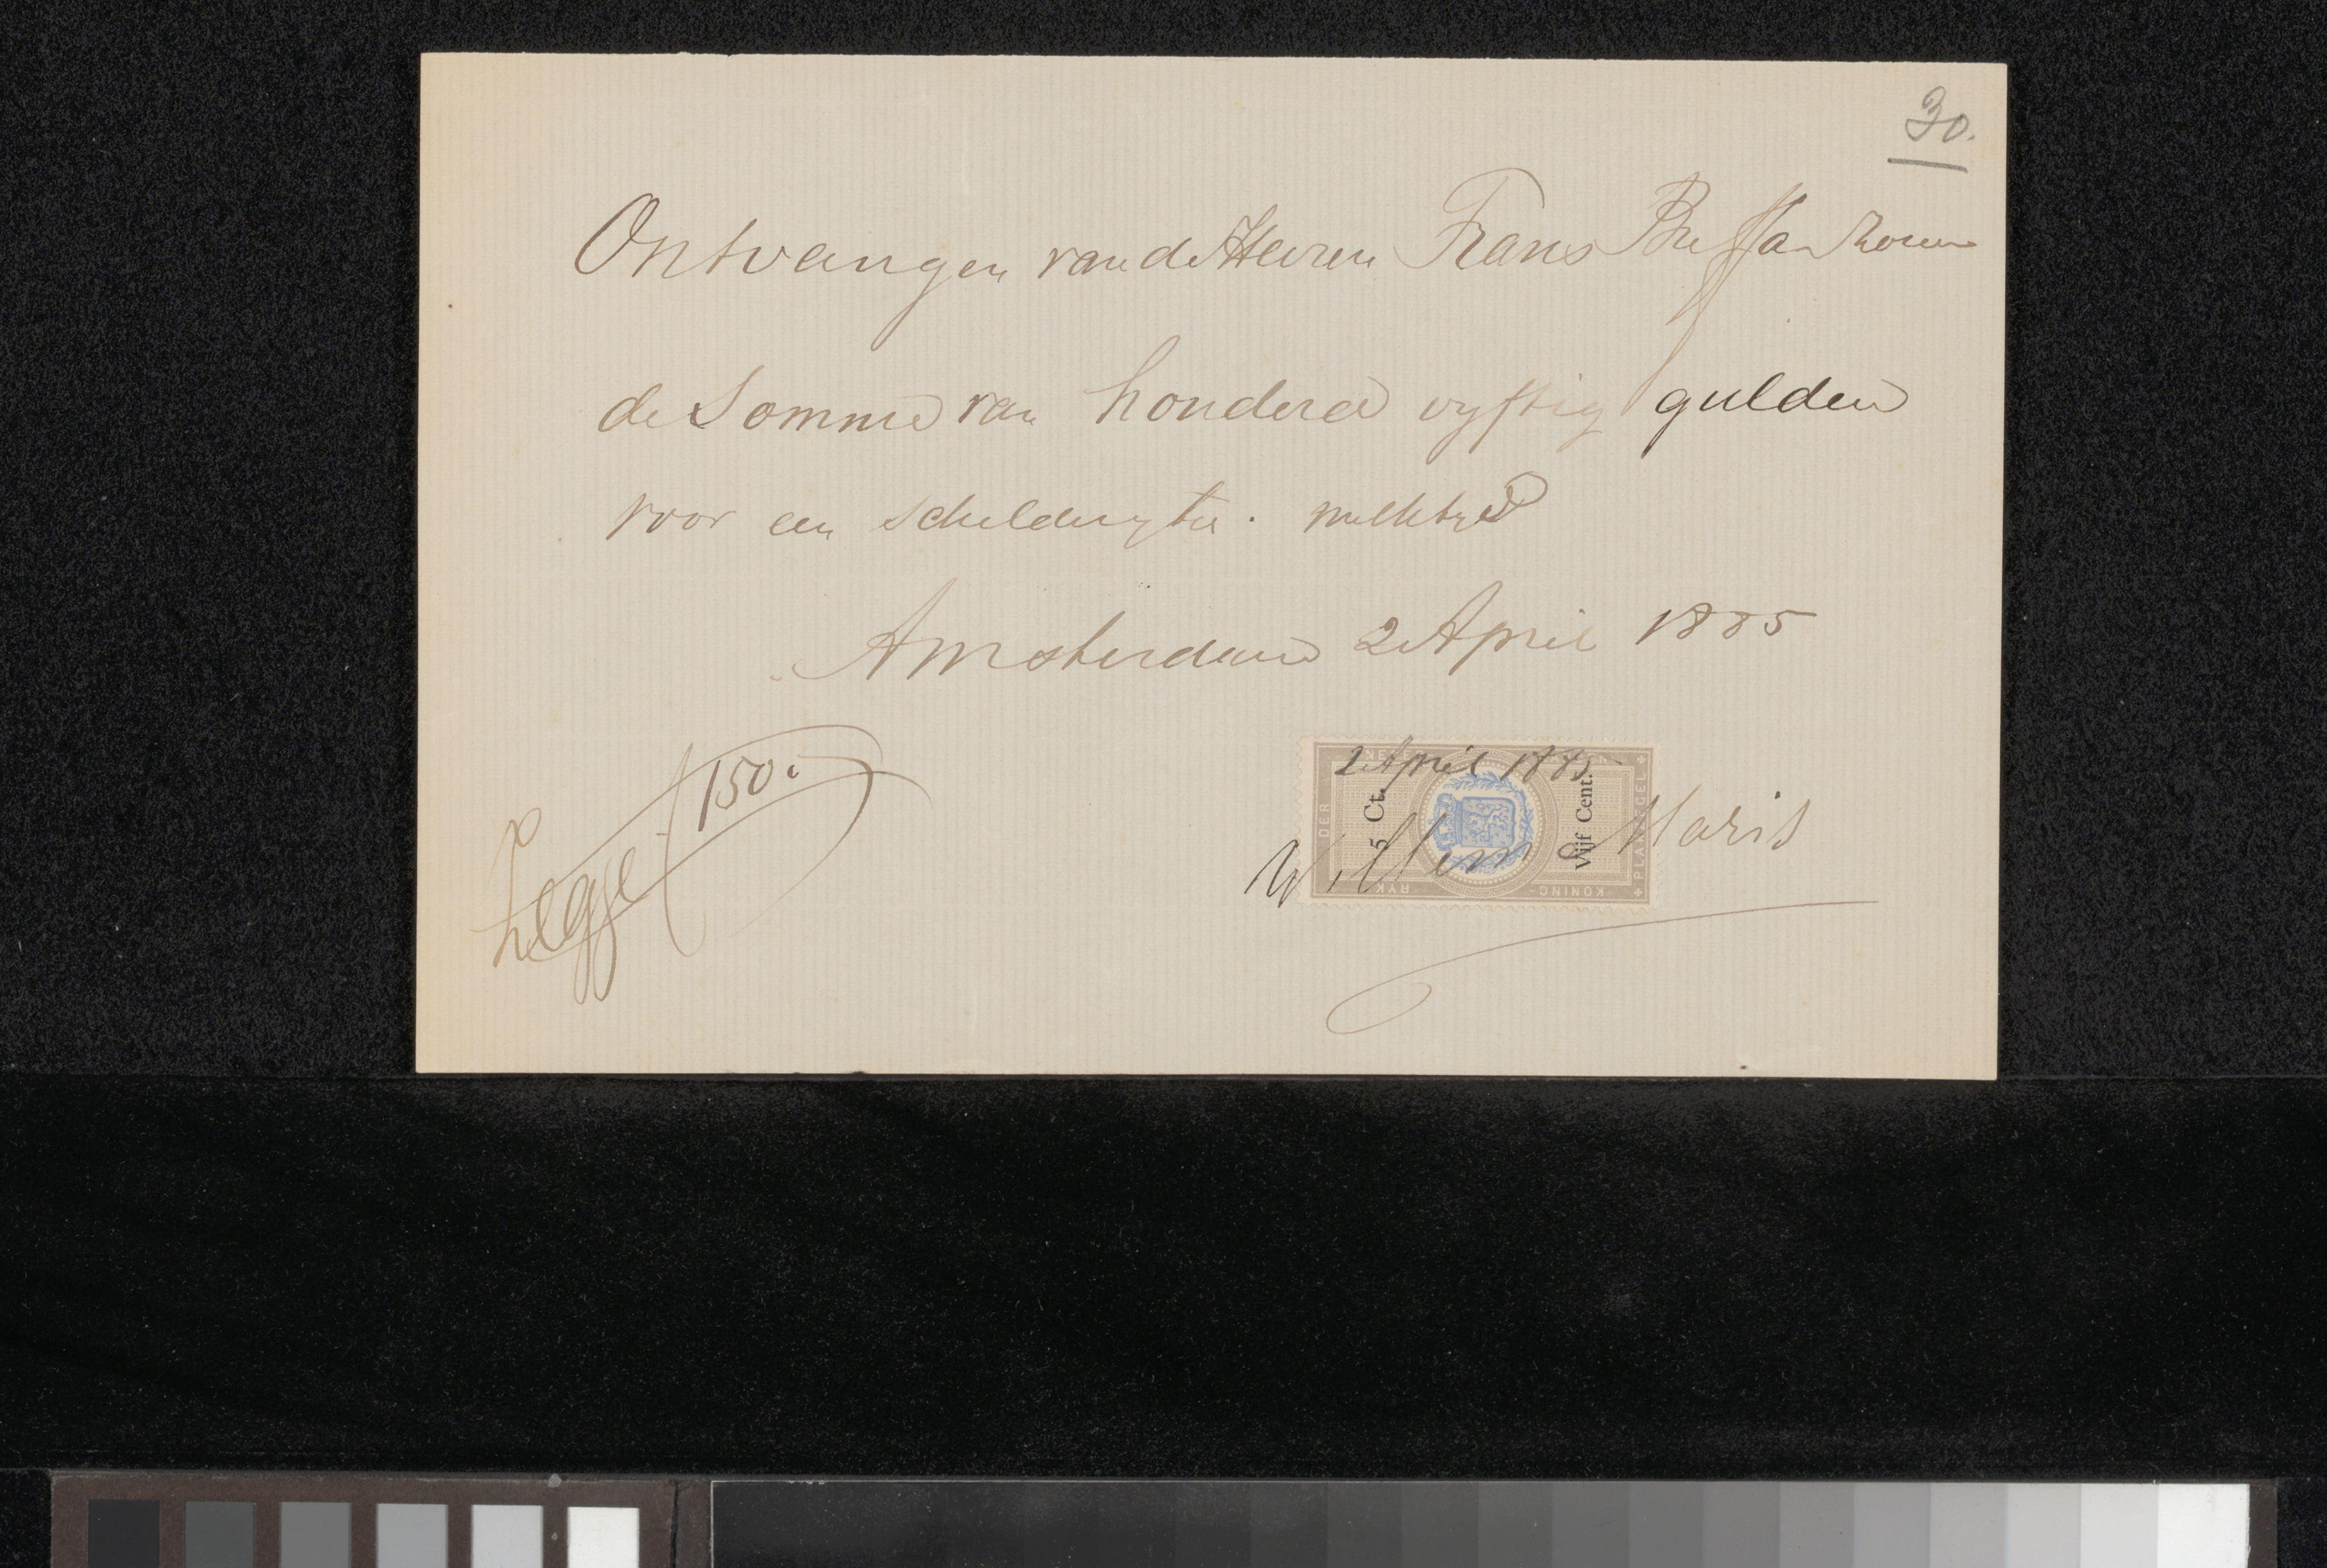 30.
Ontvangen van de Heeren Frans Buffa en Zonen
de Somme van honderd vyftig gulden
voor een schilderytje. melktyd
Amsterdam 2 April 1885
Zegge f 150.
2 April 1885
5 Ct.
Vijf Cent.
Willem Maris
DER
KONING-
RYK
PLAKZEGEL